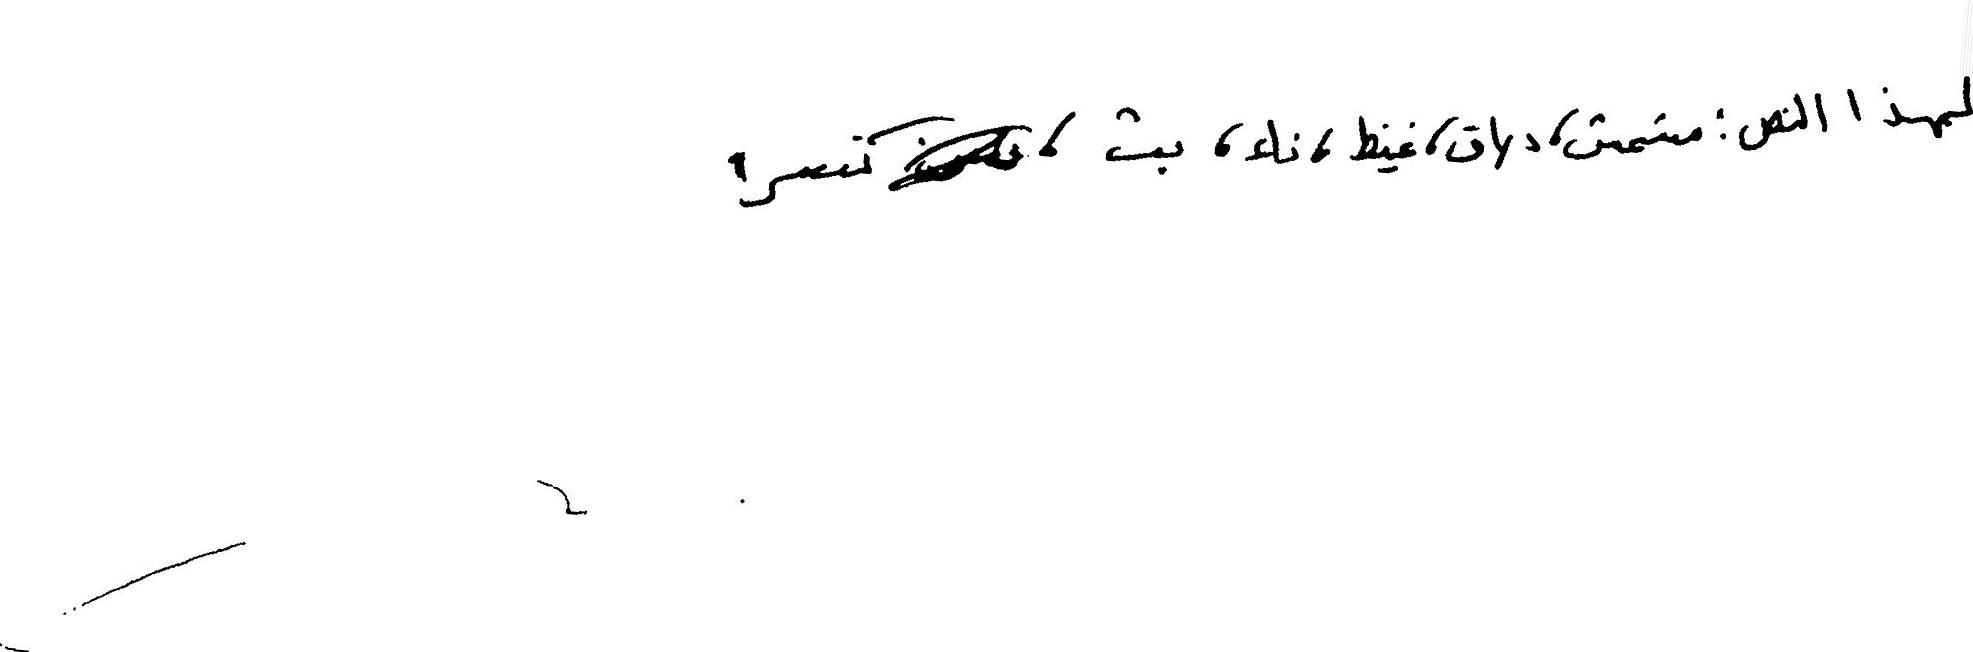 لهذا النص: مشمش، دلاق، غيظ، ناء، بث، تيسر؟